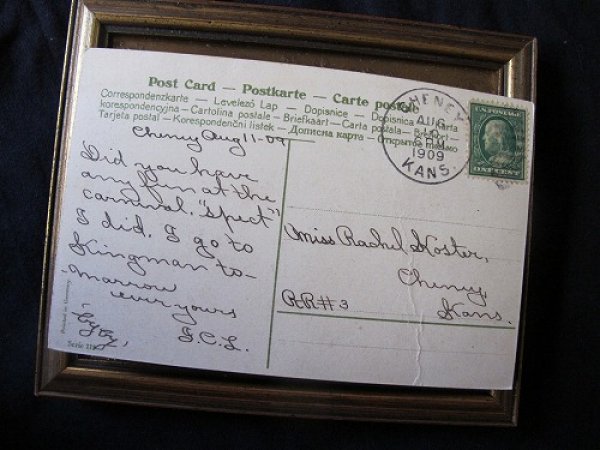 Post Card — Postkarte — Carte postale
Correspondenzkarte — Levelező Lap — Dopisnice — Dopisnica — Karta
korespondencyjna — Cartolina postale — Briefkaart — Carta postala — Brevkort
Tarjeta postal — Korespondenční lístek — Дописна карта — Открытое письмо
CHENEY
AUG
1909
KANS.
U.S. POSTAGE
ONE CENT
Cheney Aug 11-09
Did you have
any fun at the
carnival. "Spect"
I did. I go to
Kingman to-
marrow
ever yours
"By By,"
I.C.L.
Miss Rachel Koster,
Cheney,
RR#3
Kans.
Printed in Germany
Serie